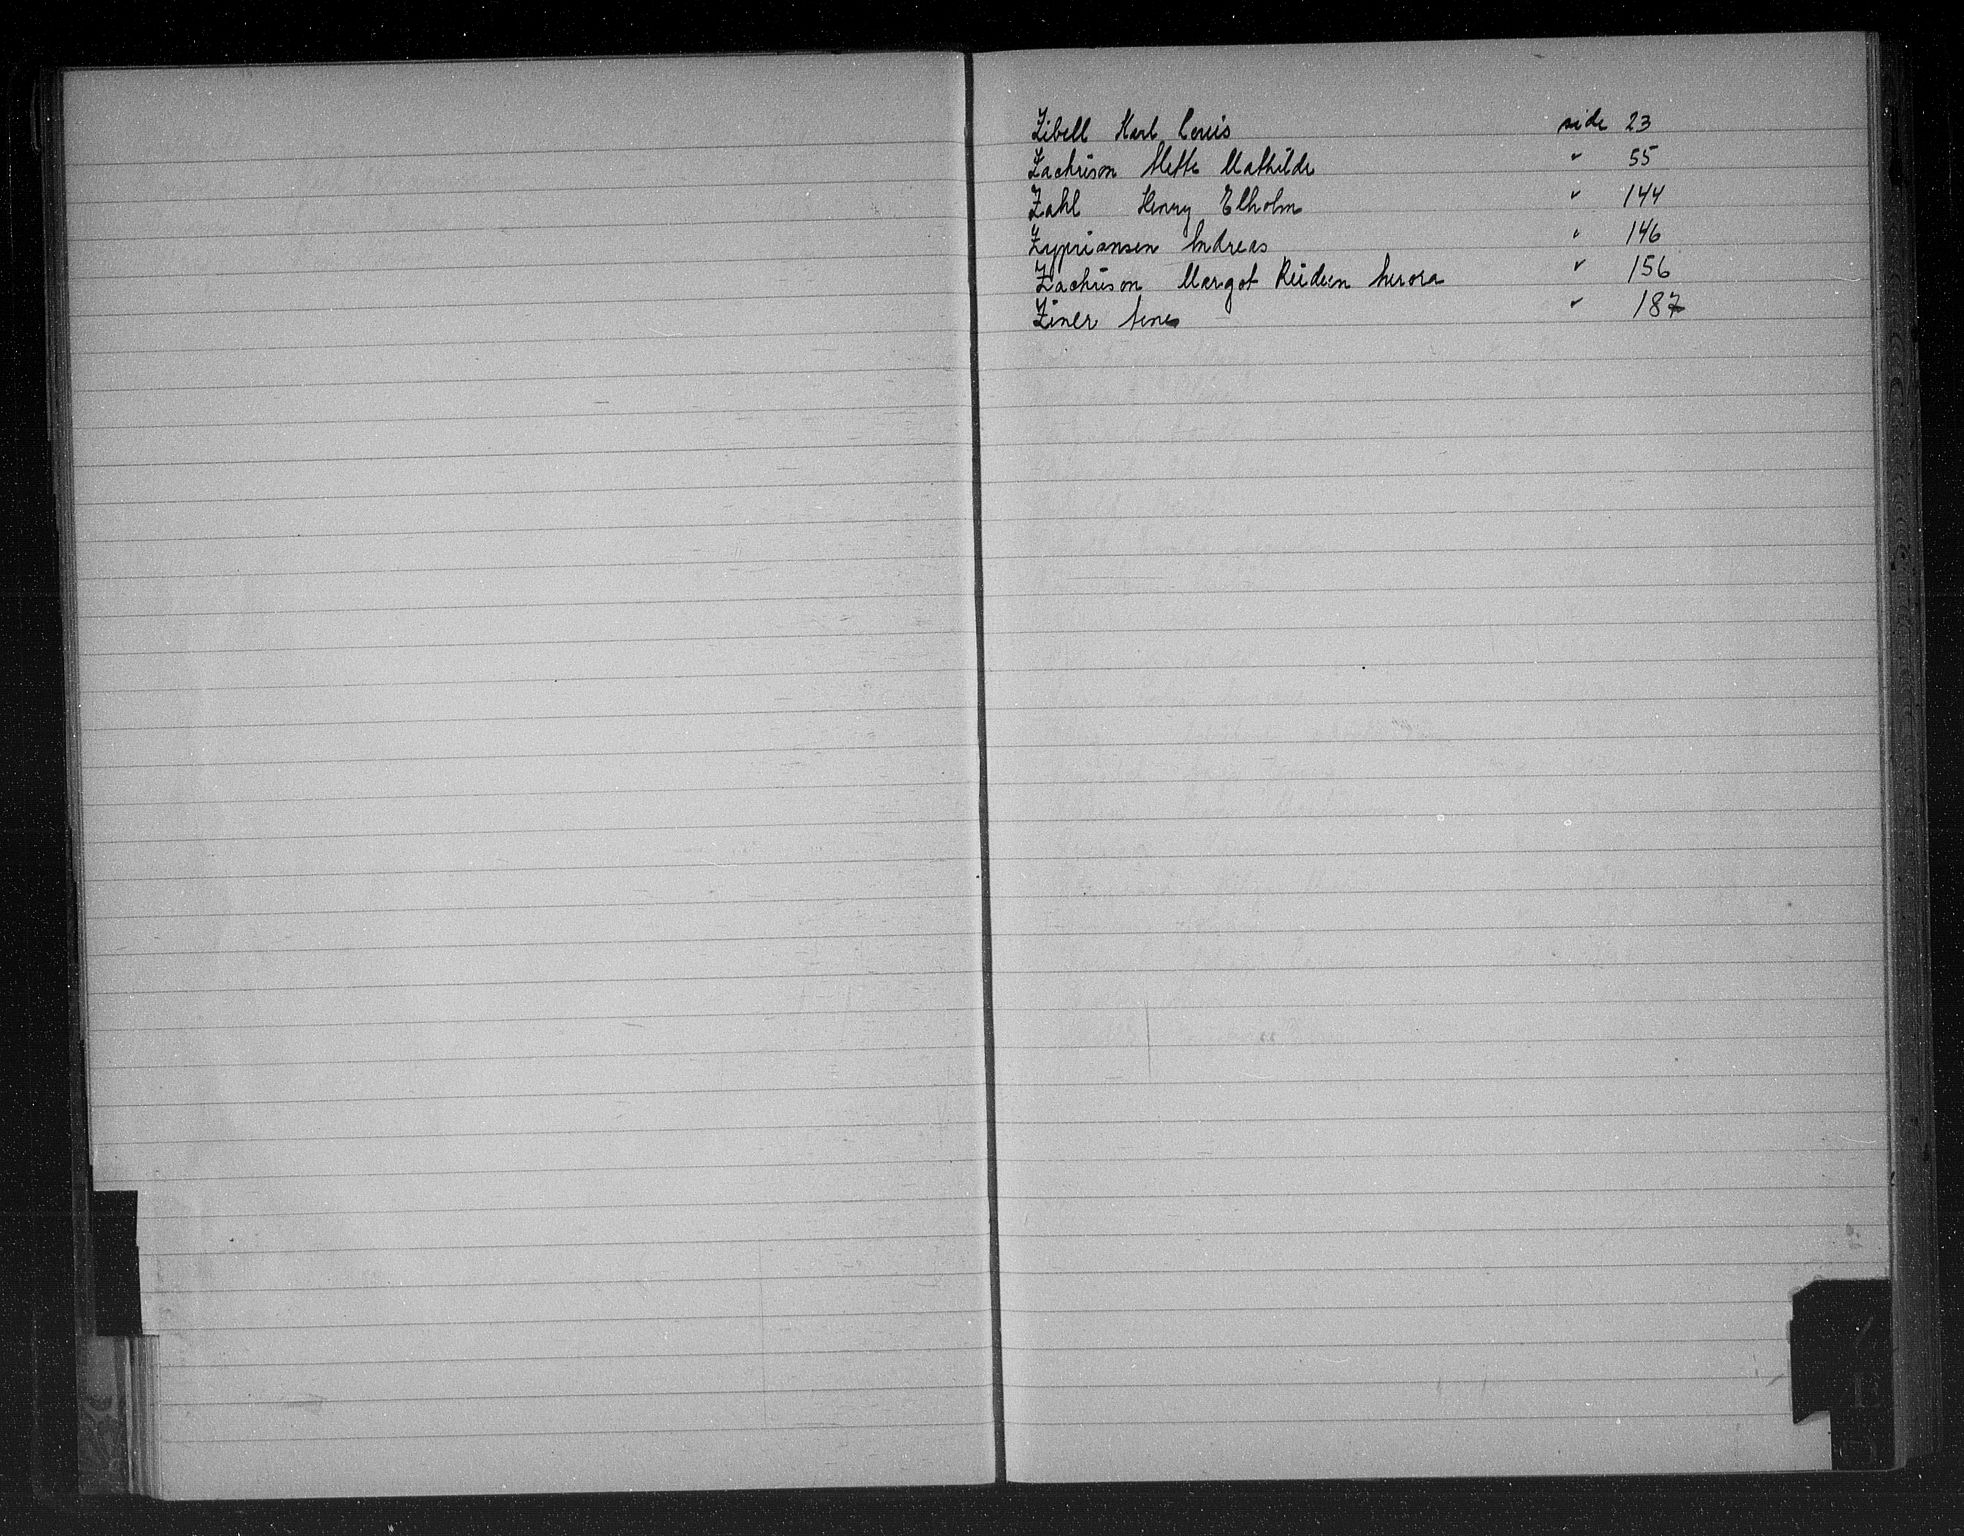 Zibell Karl Louis side 23
Zachrison Mette Mathilde " 55
Zahl Henry Elholm " 144
Zypriansen Andreas " 146
Zachrison Margot Aurora " 156
Ziner 187